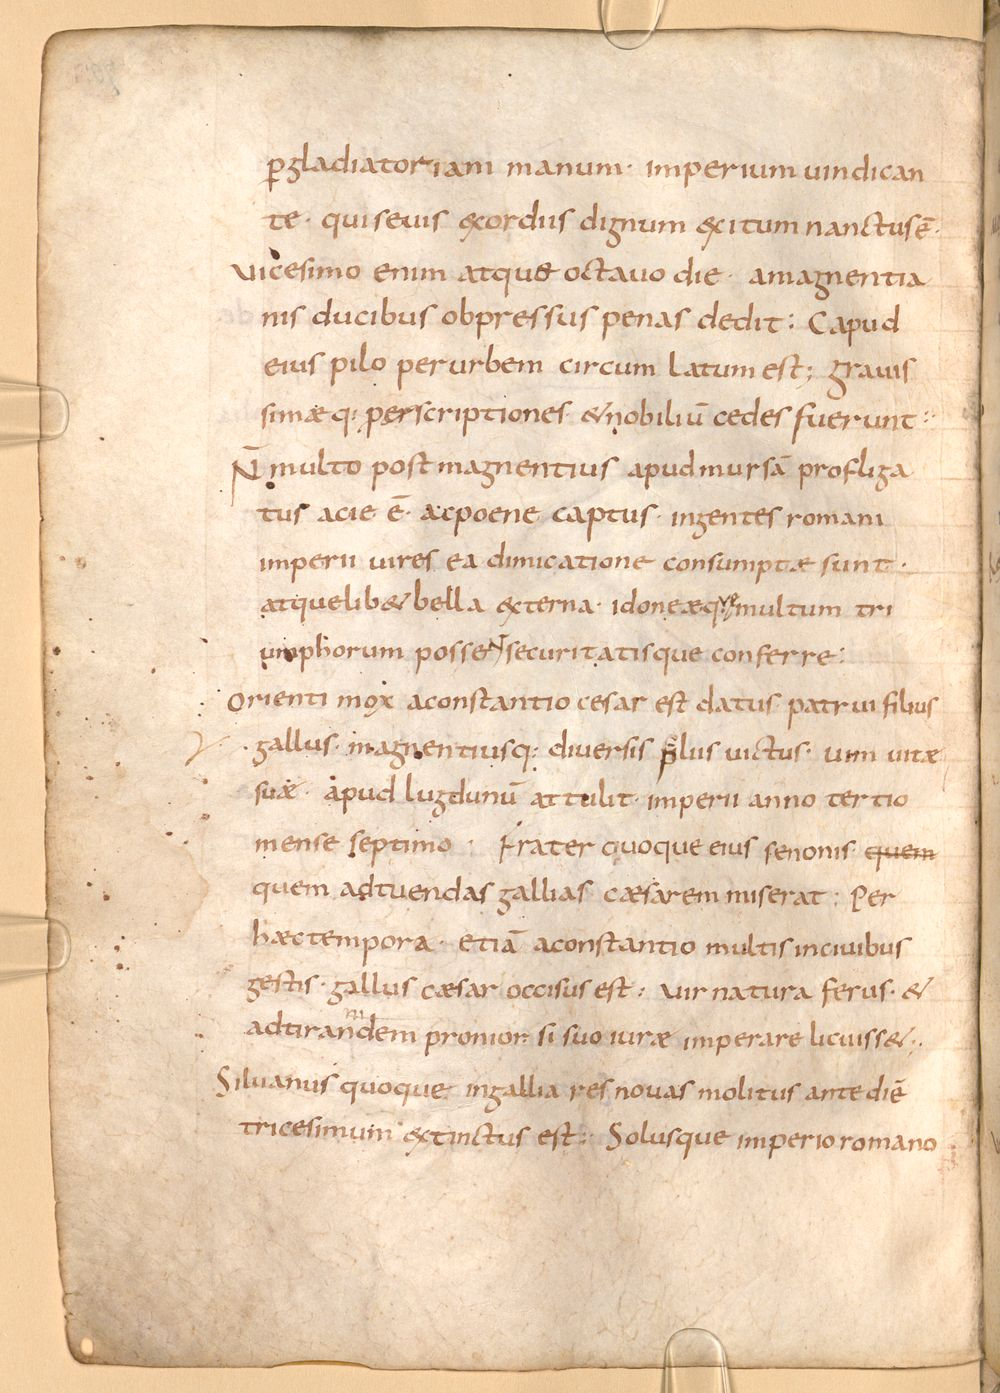 ꝑgladiatoriam manum· imperium uindican
te· qui seuis exordiis dignum exitum nanctus ē·
Vicesimo enim atque octauo die· amagnentia
nis ducibus obpressus penas dedit: Capud
eius pilo per urbem circum latum est; graui&#115;
simæq: perscriptiones· & nobiliū cedes fuerunt:
N̄ multo post magnentius apud mursā profliga
tus acie ē· acpoene captus· ingentes romani
imperii uires ea dimicatione consumptæ sunt·
atque lib& bella externa· idoneæque multum tri
umphorum possent securitatisque conferre:
Orienti mox aconstantio cesar est datus patrui filius
gallus· magnentiusq: diuersis p̄lus uictus· uim uitæ
suæ· apud lugdunū attulit· imperii anno tertio
mense septimo· Frater quoque eius senonis quem
quem adtuendas gallias cæsarem miserat: Per
hæc tempora· etiā aconstantio multis inciuibus
gestis· gallus cæsar occisus est: uir natura ferus· &
adtirannidem pronior si suo iuræ imperare licuiss&·
Siluanus quoque ingallia res nouas molitus ante diē
tricesimum extinctus est: Solusque imperio romano